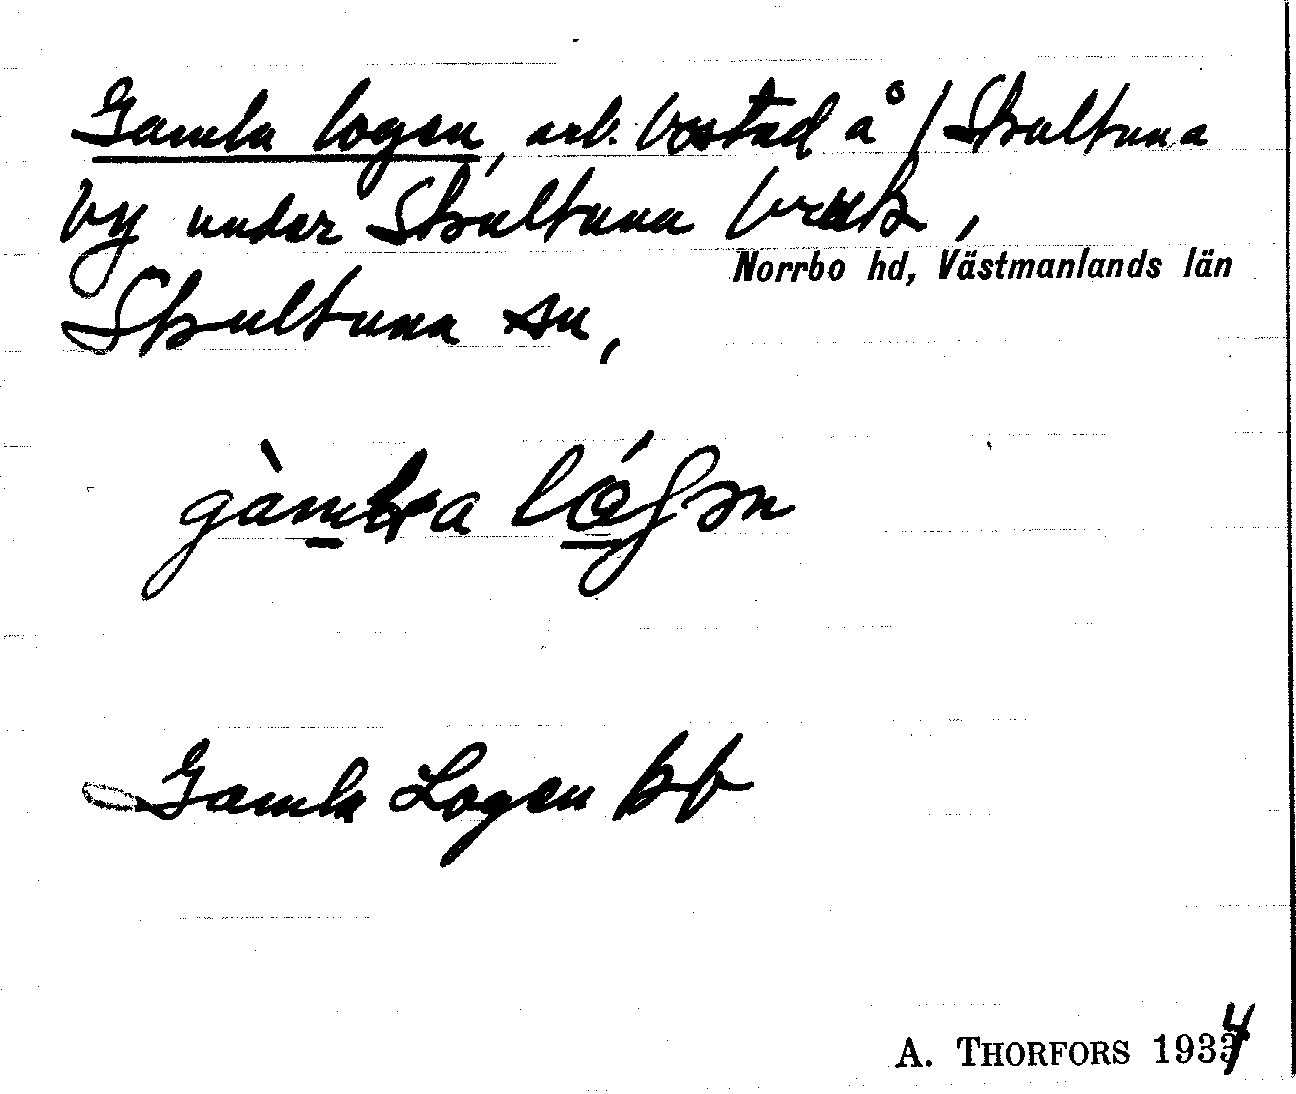 Gamla logen, arb. bostad å / Skultuna
by under Skultuna bruk,
Norrbo hd, Västmanlands län
Skultuna sn,
gàmla lógen
Gamla Logen kb
A. THORFORS 1934